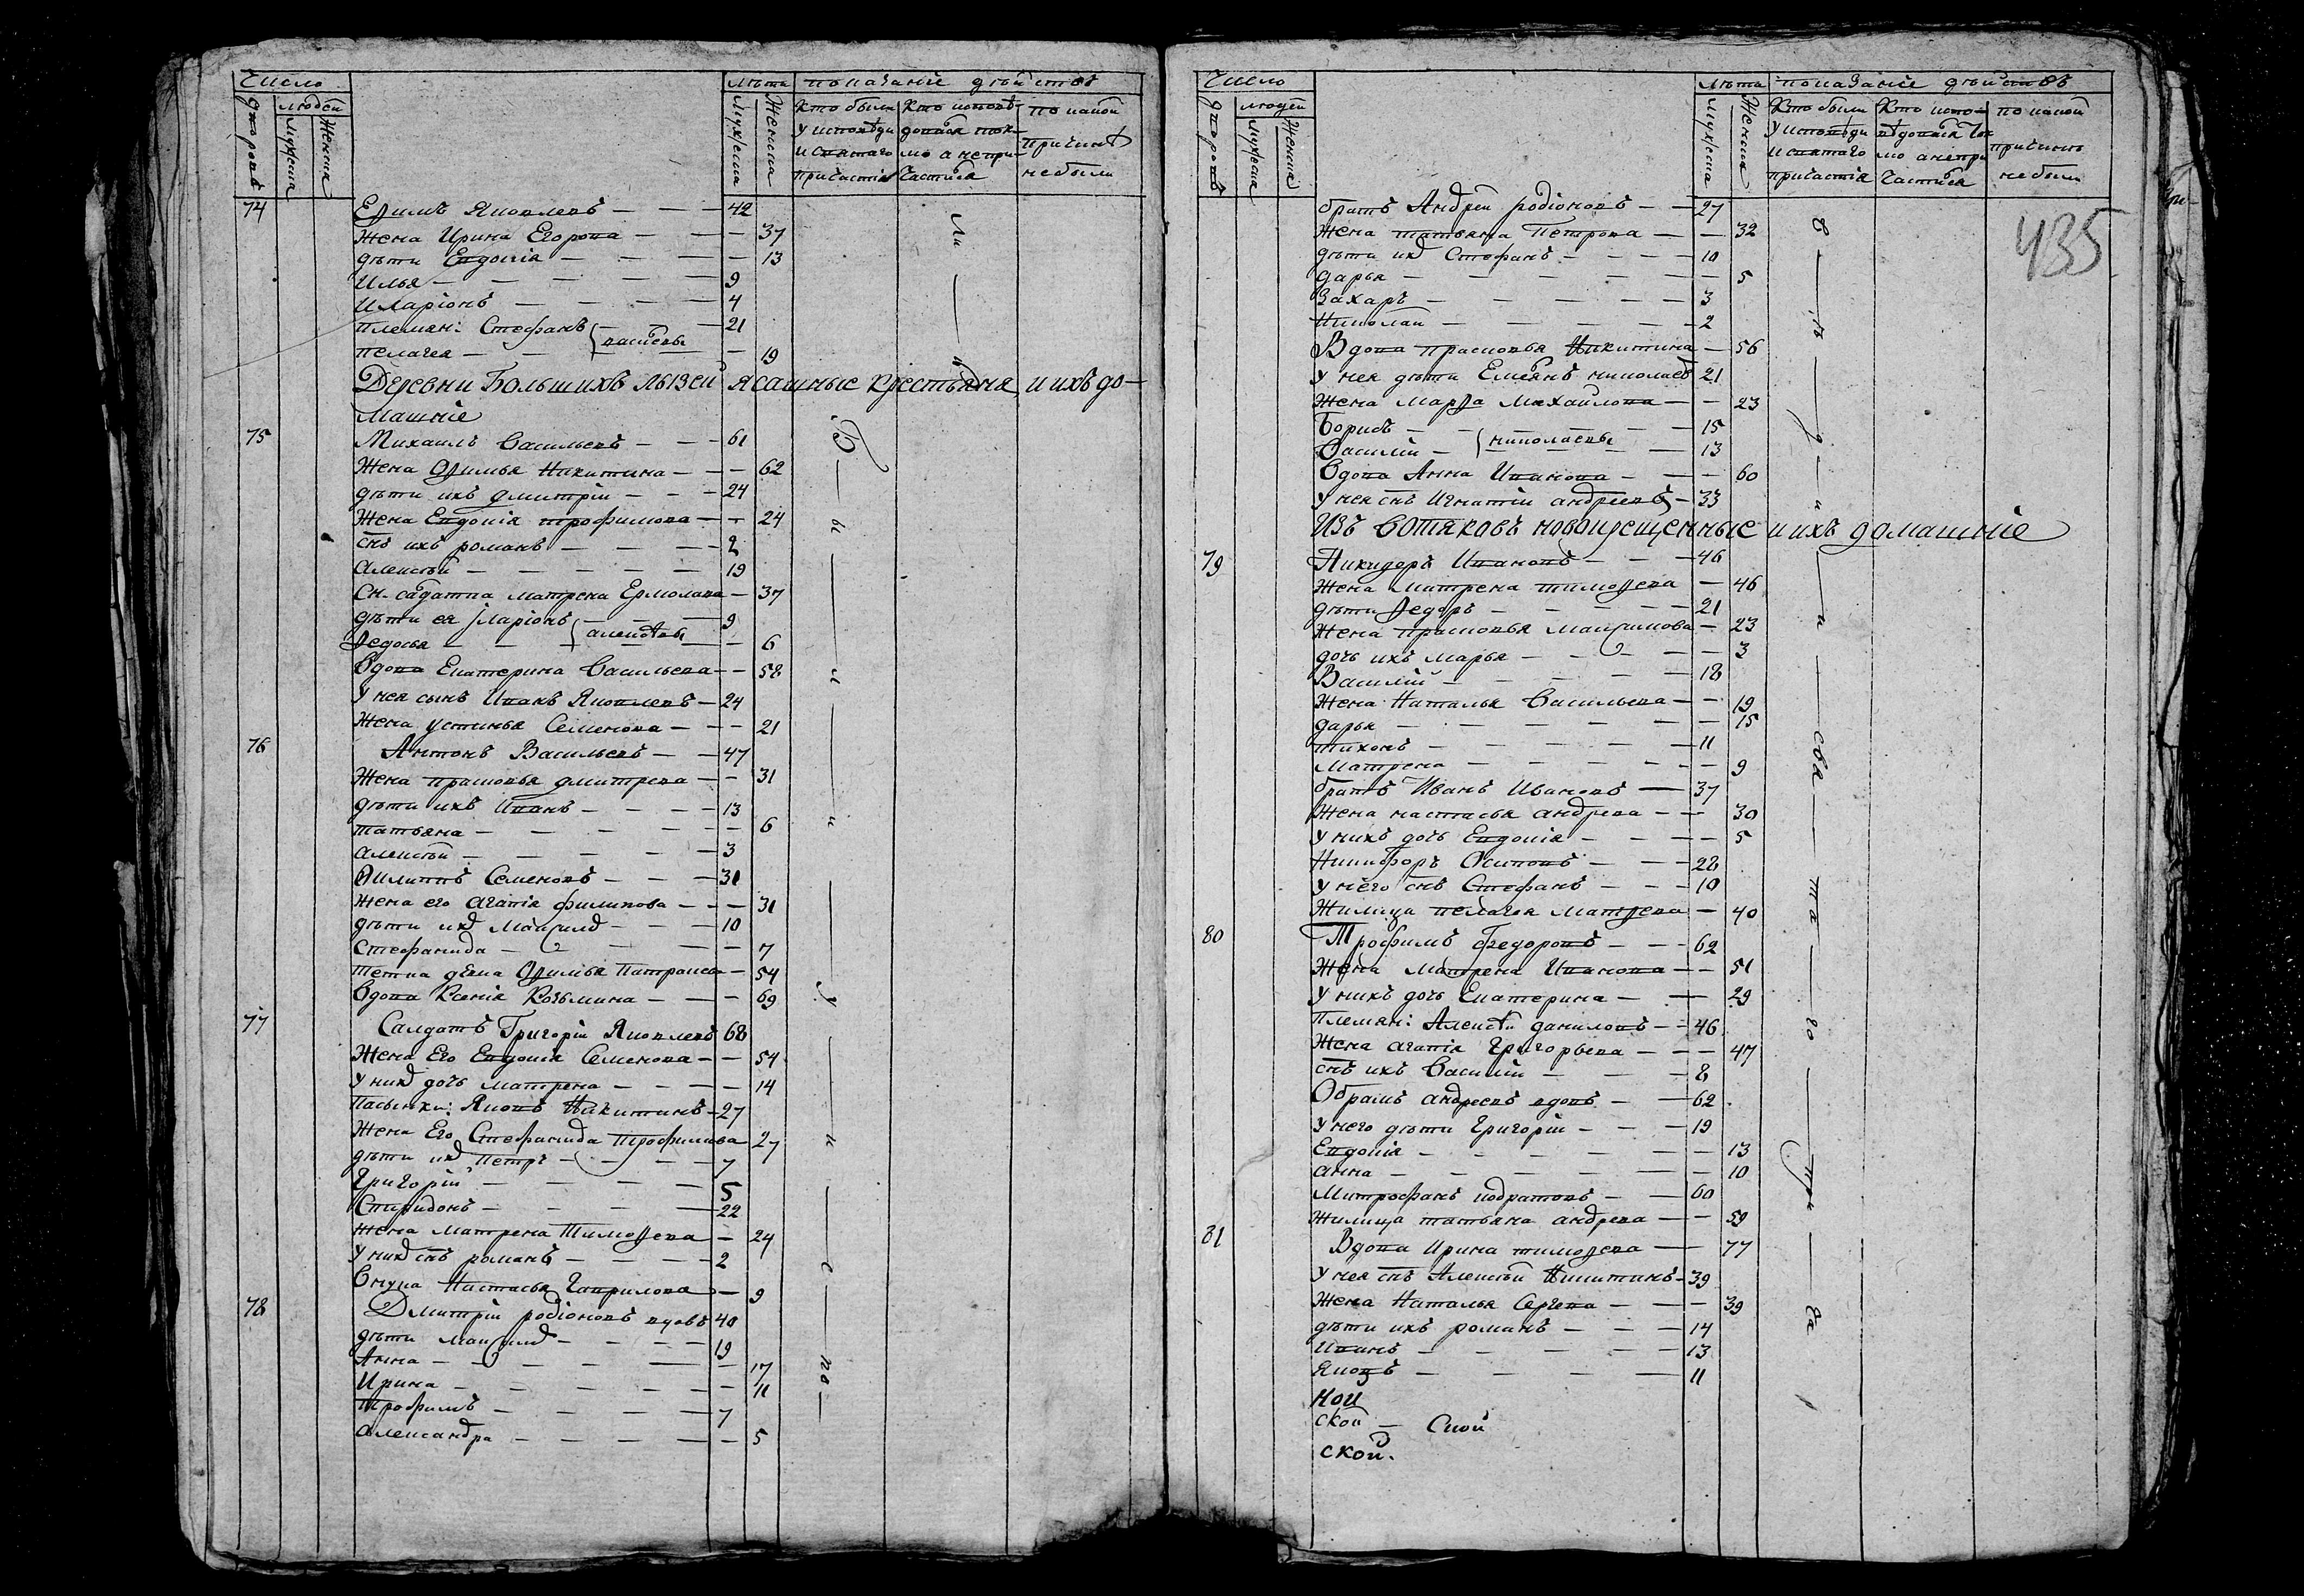 Число
людей
дворовъ
мужеска
женска
лѣта
мужеска
женска
показаніе дѣйствъ
Кто были у исповѣди и святаго причастія
Кто исповѣдовался токмо а непричастился
по какой причинѣ небыли
74 Еѳимъ Яковлевъ — 42
Жена Ирина Егорова — 37
дѣти Евдокія — 13
Илья — 9
Иларіонъ — 4
племян: Стефанъ — 21
пелагея — 19
Деревни Большихъ лызей ясашные крестьяня и ихъ до-
машніе
75 Михаилъ Васильевъ — 61
Жена Оѳимья Никитина — 62
дѣти ихъ дмитрій — 24
Жена Евдокія трофимова — 24
снъ ихъ романъ — 2
Алексѣй — 19
Сн. салдатка матрена Ермолаева — 37
дѣти ея Іларіонъ — 9
Ѳедосья — 6
алексѣевы
Вдова Екатерина Васильева — 58
У нея сынъ Иванъ Яковлевъ — 24
Жена устинья Семенова — 21
76 Антонъ Васильевъ — 47
Жена прасковья дмитрева — 31
дѣти ихъ Иванъ — 13
татьяна — 6
алексѣй — 3
Филиппъ Семеновъ — 31
Жена его агапія филипова — 31
дѣти их Максимъ — 10
Стефанида — 7
тетка девка Оѳимья Патракеева — 54
Вдова Ксенія Козьмина — 69
77 Салдатъ Григорій Яковлевъ 68
Жена Его Евдокія Семенова — 54
У них дочь матрена — 14
Пасынки: Яковъ Никитинъ — 27
Жена Его Стефанида трофимова 27
дѣти их петръ — 7
Григорій — 5
Спиридонъ — 22
Жена матрена Тимоѳева — 24
У них снъ романъ — 2
Внука Настасья Гаврилова — 9
78 Дмитрій родіоновъ вдовъ 40
дѣти Максимъ — 19
Анна — 17
Ирина — 11
трофимъ — 7
александра — 5
Число
людей
дворовъ
мужеска
женска
лѣта
мужеска
женска
показаніе дѣйствъ
Кто были у исповѣди и святаго причастія
Кто исповѣдовался токмо а непричастился
по какой причинѣ небыли
435
братъ Андрей родіоновъ — 27
Жена татьяна Петрова — 32
дѣти их Стефанъ — 10
дарья — 5
Захаръ — 3
Николай — 2
Вдова прасковья Никитина — 56
У нея дѣти Емельянъ николаевъ 21
Жена Марѳа Михайлова — 23
Борисъ — 15
Василій — 13
николаевы
Вдова Анна Иванова — 60
У нея снъ Игнатій андреевъ — 33
Изъ вотяковъ новокрещенные и ихъ домашніе
79 Никифоръ Ивановъ — 46
Жена матрена тимоѳева — 46
дѣти Ѳедоръ — 21
Жена прасковья максимова — 23
дочь ихъ марья — 3
Василій — 18
Жена Наталья Васильева — 19
дарья — 15
тихонъ — 11
Матрена — 9
братъ Иванъ Ивановъ — 37
Жена настасья андрева — 30
У нихъ дочь Евдокія — 5
Никифоръ Осиповъ — 28
У него снъ Стефанъ — 10
Жилица пелагея матѳева — 40
80 Трофимъ Федоровъ — 62
Жена Матрена Иванова — 51
У нихъ дочь Екатерина — 29
племян: Алексѣй даниловъ — 46
Жена агапія Григорьева — 47
снъ ихъ Василій — 8
Обрамъ андреевъ вдовъ — 62
У него дѣти Григорій — 19
Евдокія — 13
анна — 10
Митрофанъ кодратовъ — 60
Жилица татьяна андрева — 59
81 Вдова Ирина тимоѳева — 77
У нея снъ Алексѣй Никитинъ — 39
Жена Наталья Сергева — 39
дѣти ихъ романъ — 14
Иванъ — 13
Яковъ — 11
кой
ской — Ской
ской.